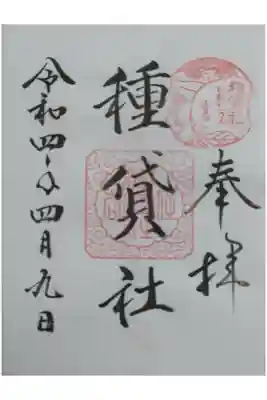 奉拝
種貸社
令和四年四月九日